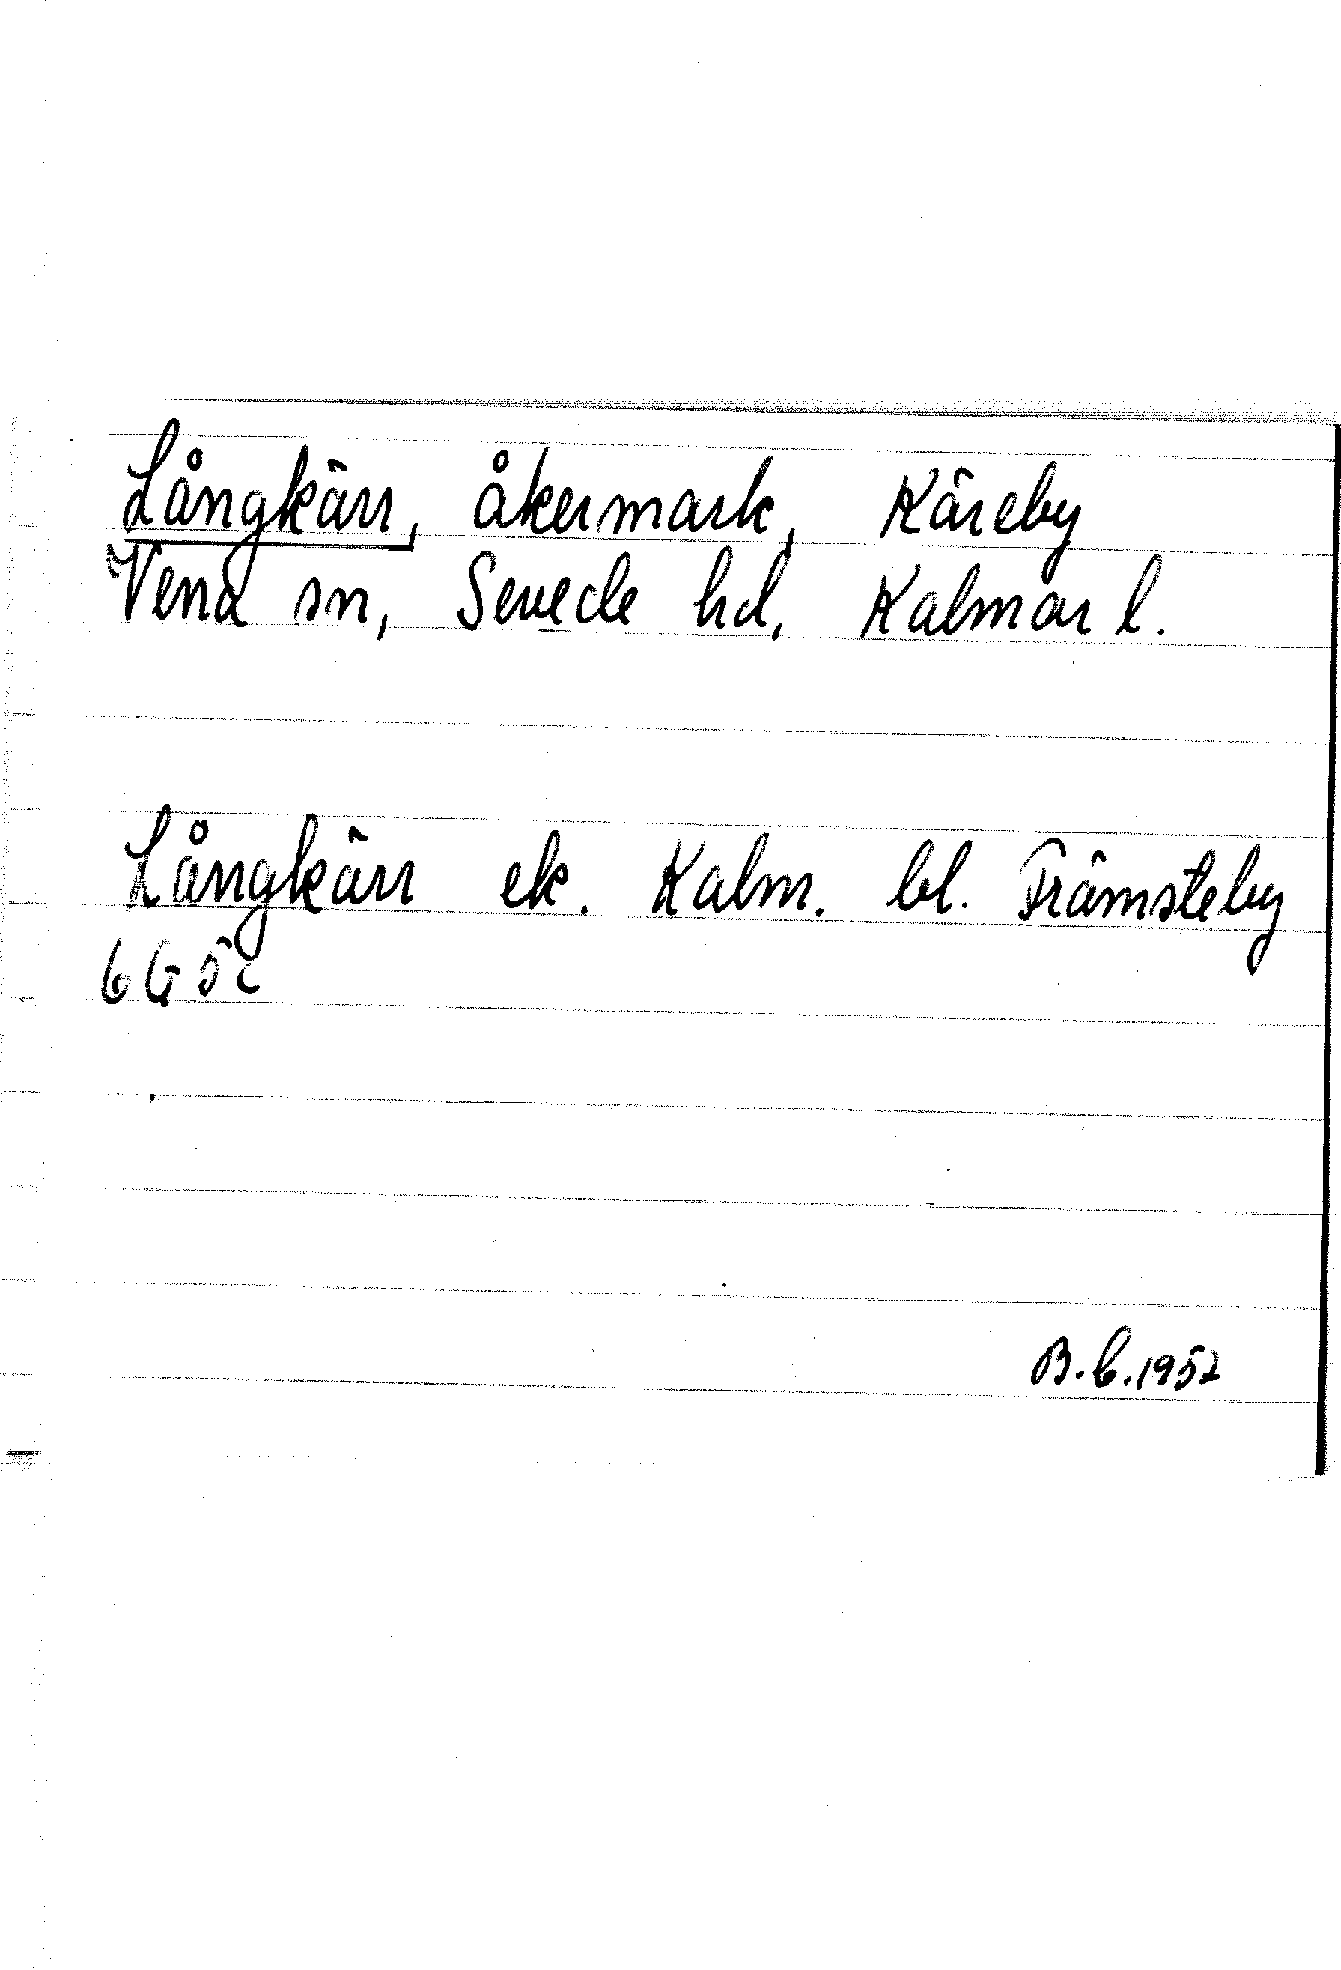 Långkärr, åkermark, Käreby
Vena sn, Sevede hd, Kalmar l.
Långkärr ek. Kalm. bl. Främsteby
6G5c
B.G.1952